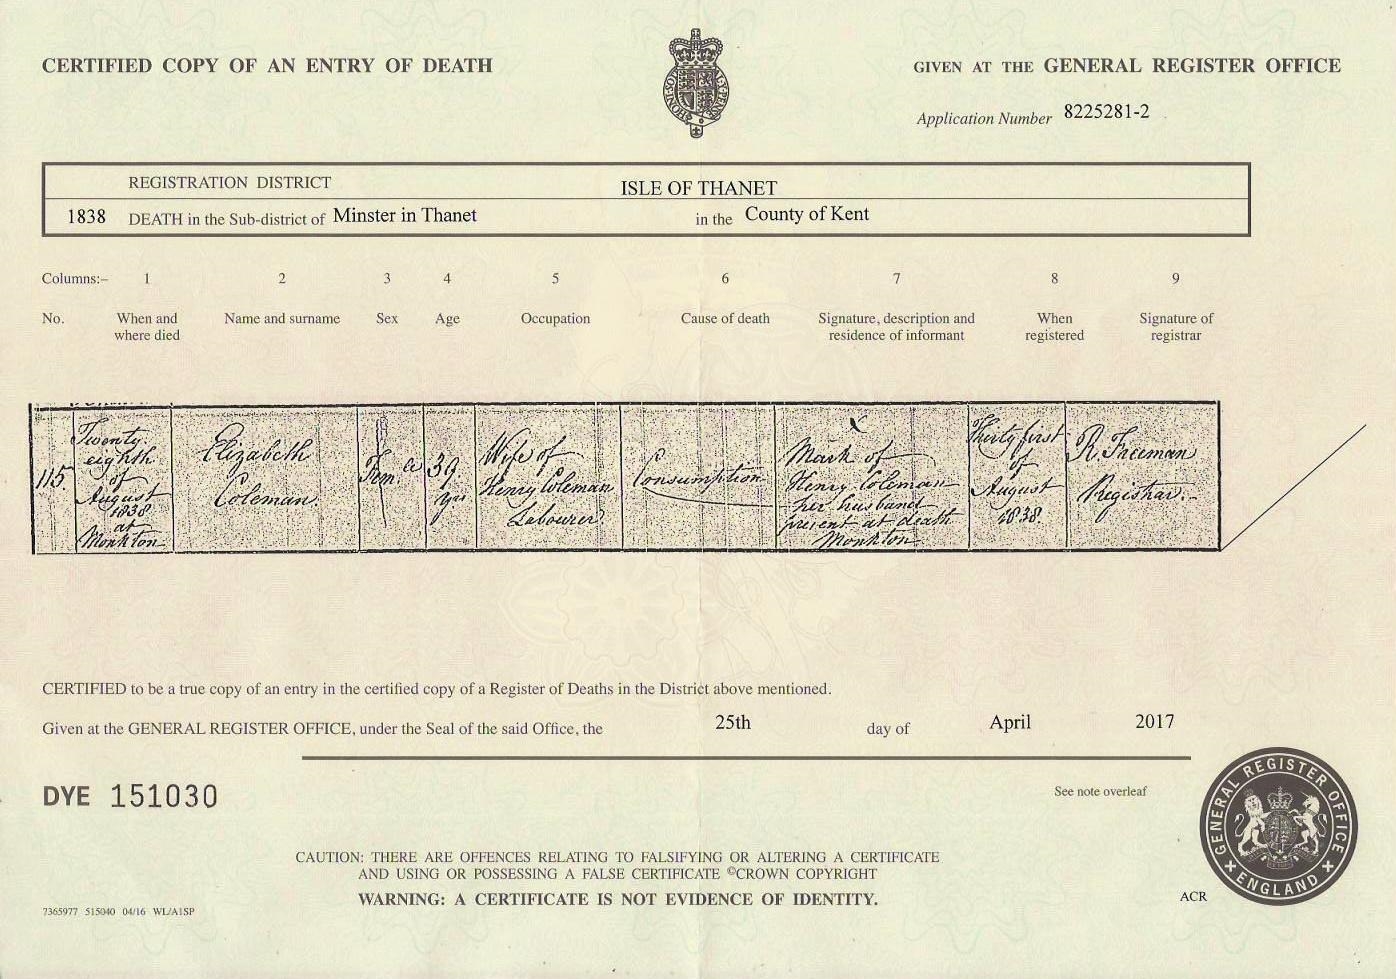 CERTIFIED COPY OF AN ENTRY OF DEATH
GIVEN AT THE GENERAL REGISTER OFFICE
Application Number 8225281-2
REGISTRATION DISTRICT ISLE OF THANET
1838 DEATH in the Sub-district of Minster in Thanet in the County of Kent
Columns:– 1 2 3 4 5 6 7 8 9
No.
When and
where died
Name and surname
Sex
Age
Occupation
Cause of death
Signature, description and
residence of informant
When
registered
Signature of
registrar
115
Twenty
eighth
of
August
1838
at
Monkton
Elizabeth
Coleman.
Female
39
yrs
Wife of
Henry Coleman
Labourer
Consumption
X
Mark of
Henry Coleman
her husband
present at death
Monkton
Thirty first
of
August
1838.
R. Freeman
Registrar.
CERTIFIED to be a true copy of an entry in the certified copy of a Register of Deaths in the District above mentioned.
Given at the GENERAL REGISTER OFFICE, under the Seal of the said Office, the 25th day of April 2017
DYE 151030
See note overleaf
GENERAL REGISTER OFFICE
ENGLAND
CAUTION: THERE ARE OFFENCES RELATING TO FALSIFYING OR ALTERING A CERTIFICATE
AND USING OR POSSESSING A FALSE CERTIFICATE ©CROWN COPYRIGHT
WARNING: A CERTIFICATE IS NOT EVIDENCE OF IDENTITY.
ACR
7365977 515040 04/16 WL/A1SP